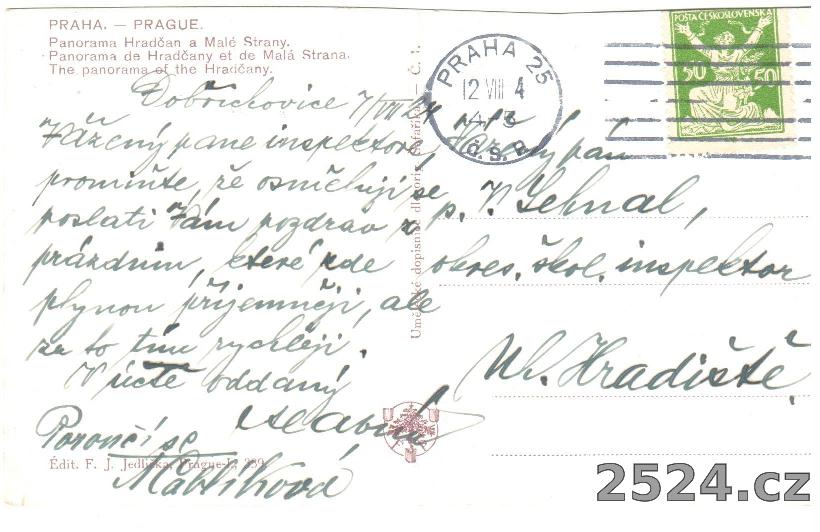 PRAHA. — PRAGUE.
Panorama Hradčan a Malé Strany.
Panorama de Hradčany et de Malá Strana.
The panorama of the Hradčany.
PRAHA 25
12 VIII 4
Č.S.P.
POŠTA ČESKOSLOVENSKÁ
50 50
Dobřichovice 7/VIII 24
Vážený pane inspektore,
promiňte, že osměluji se
poslati Vám pozdrav z
prázdnin, které zde
plynou příjemněji, ale
za to tím rychleji.
V úctě oddaný
Poroučí se
Vážený pán
p. V. Sehnal,
okres. škol. inspektor
Uh. Hradiště
Umělecké dopisnice
Édit. F. J. Jedlička, Prague-I., 389.
2524.cz